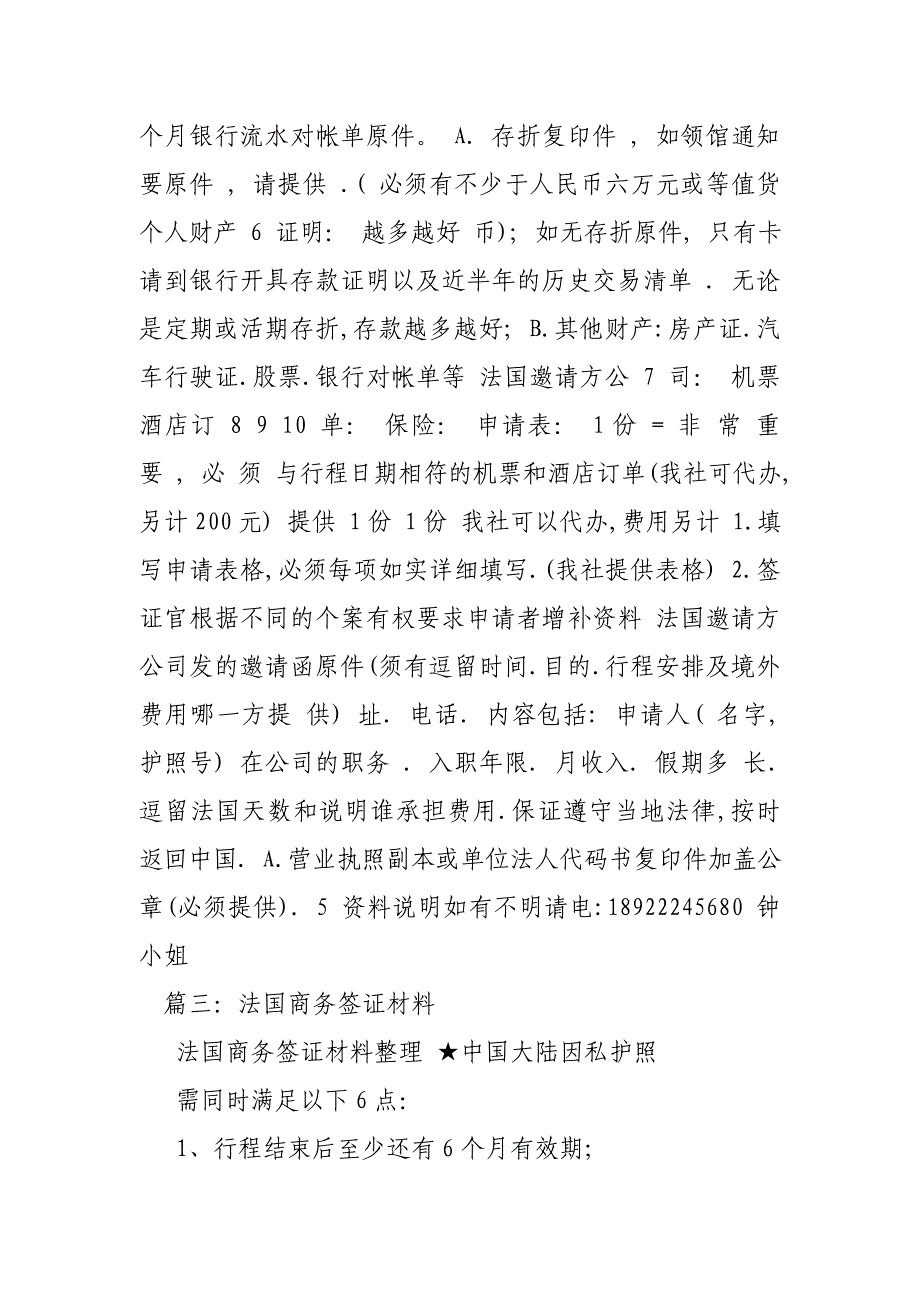 个月银行流水对帐单原件。 A. 存折复印件 , 如领馆通知
要原件 , 请提供 .( 必须有不少于人民币六万元或等值货
个人财产 6 证明: 越多越好 币); 如无存折原件, 只有卡
请到银行开具存款证明以及近半年的历史交易清单 . 无论
是定期或活期存折,存款越多越好; B.其他财产:房产证.汽
车行驶证.股票.银行对帐单等 法国邀请方公 7 司: 机票
酒店订 8 9 10 单: 保险: 申请表: 1份 = 非 常 重
要 , 必 须 与行程日期相符的机票和酒店订单(我社可代办,
另计200元) 提供 1份 1份 我社可以代办,费用另计 1.填
写申请表格,必须每项如实详细填写.(我社提供表格) 2.签
证官根据不同的个案有权要求申请者增补资料 法国邀请方
公司发的邀请函原件(须有逗留时间.目的.行程安排及境外
费用哪一方提 供) 址. 电话. 内容包括: 申请人( 名字,
护照号) 在公司的职务 . 入职年限. 月收入. 假期多 长.
逗留法国天数和说明谁承担费用.保证遵守当地法律,按时
返回中国. A.营业执照副本或单位法人代码书复印件加盖公
章(必须提供). 5 资料说明如有不明请电:18922245680 钟
小姐
篇三: 法国商务签证材料
法国商务签证材料整理 ★中国大陆因私护照
需同时满足以下6点:
1、行程结束后至少还有6个月有效期;